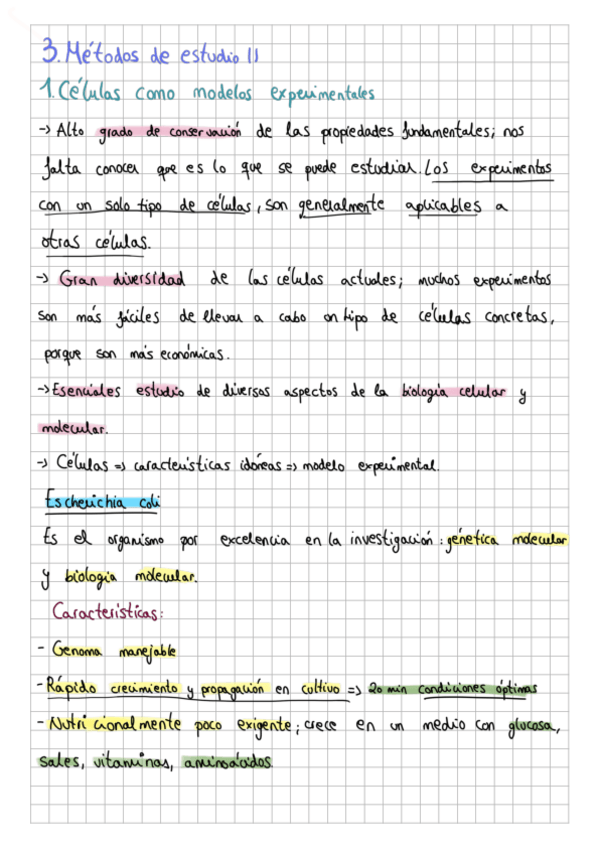 3. Métodos de estudio II
1. Células como modelos experimentales
-> Alto grado de conservación de las propiedades fundamentales; nos
falta conocer que es lo que se puede estudiar. Los experimentos
con un solo tipo de células, son generalmente aplicables a
otras células.
-> Gran diversidad de las células actuales; muchos experimentos
son más fáciles de llevar a cabo en tipo de células concretas,
porque son más económicas.
-> Esenciales estudio de diversos aspectos de la biología celular y
molecular.
-> Células => características idóneas => modelo experimental.
Escherichia coli
Es el organismo por excelencia en la investigación: génetica molecular
y biología molecular.
Características:
- Genoma manejable
- Rápido crecimiento y propagación en cultivo => 20 min condiciones óptimas
- Nutricionalmente poco exigente; crece en un medio con glucosa,
sales, vitaminas, aminoácidos.